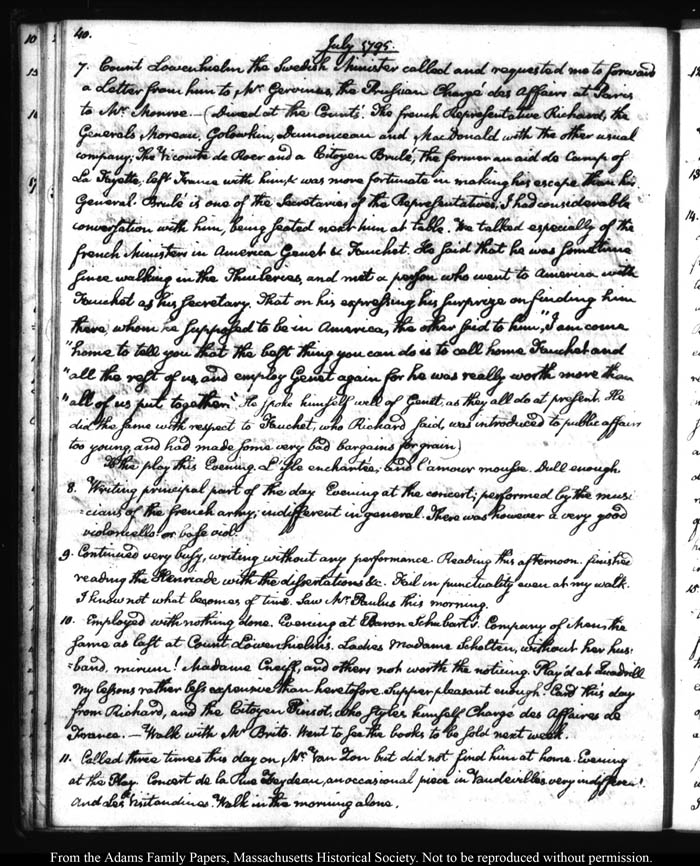 40.
July 1795.
7. Count Lowenhielm the Swedish Minister called and requested me to forward
a Letter from him to Mr Gervinus, the Prussian Chargé des Affairs at Paris
to Mr Monroe.— (Dined at the Counts. The french Representative Richard, the
Generals Moreau, Golowkin, Dumonceau and MacDonald with the other usual
company; The Vicomte de Roer and a Citoyen Brulé, the former an aid de Camp of
La Fayette, left France with him, & was more fortunate in making his escape than his
General. Brulé is one of the Secretaries of the Representatives, I had considerable
conversation with him, being seated next him at table. We talked especially of the
french Ministers in America Genet & Fauchet. He said that he was sometime
since walking in the Thuileries, and met a person who went to America with
Fauchet as his Secretary. That on his expressing his surprize on finding him
there, whom he supposed to be in America, the other said to him, "I am come
"home to tell you that the best thing you can do is to call home Fauchet and
"all the rest of us, and employ Genet again for he was really worth more than
"all of us put together." He spoke himself well of Genet, as they all do at present. He
did the same with respect to Fauchet, who Richard said, was introduced to public affairs
too young, and had made some very bad bargains for grain)
At the play this Evening. L'isle enchantée, and l'amour mousse. Dull enough.
8. Writing principal part of the day. Evening at the concert; performed by the musi
=cians of the french army; indifferent in general. There was however a very good
violoncello or base viol.
9. Continued very busy, writing without any performance. Reading this afternoon. finished
reading the Henriade with the dissertations &c. Fail in punctuality even at my walk.
I know not what becomes of time. Saw Mr Paulus this morning.
10. Employed with nothing done. Evening at Baron Schubart's. Company of Men, the
same as last at Count Löwenhielm's. Ladies Madame Scholten, without her hus:
=band, mirum! Madame Creiff, and others not worth the noticing. Play'd at Quadrill
My lessons rather less expensive than heretofore. Supper pleasant enough. Card this day
from Richard, and the Citoyen Pinsot, who styles himself Chargé des Affaires de
France.— Walk with Mr Brito. Went to see the books to be sold next week.
11. Called three times this day on Mr Van Son but did not find him at home. Evening
at the Play. Concert de la Rue Feydeau, an occasional piece in Vaudevilles very indifferent.
And Les Visitandines. Walk in the morning alone.
From the Adams Family Papers, Massachusetts Historical Society. Not to be reproduced without permission.